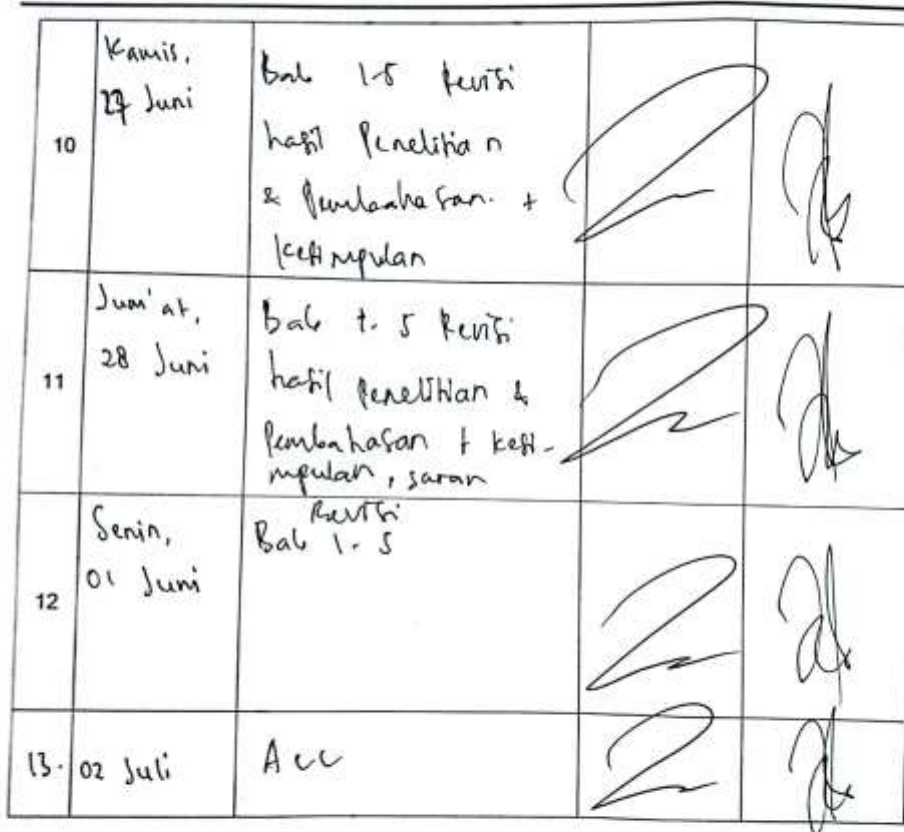 10
Kamis,
27 Juni
Bab 1-5 Revisi
hasil Penelitian
& Pembahasan. +
kesimpulan
11
Jum'at,
28 Juni
Bab 1-5 Revisi
hasil Penelitian &
Pembahasan + kesi-
mpulan, saran
12
Senin,
01 Juni
Revisi
Bab 1-5
13.
02 Juli
Acc